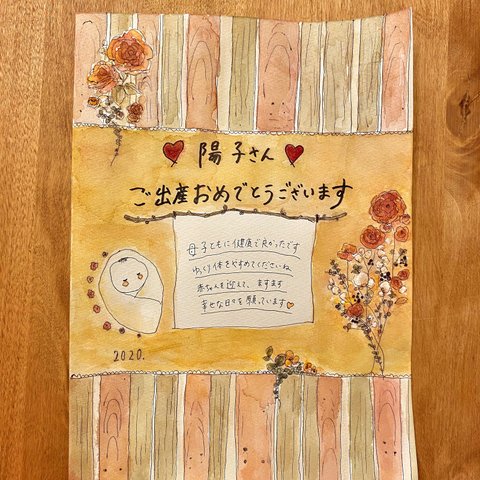 陽子さん
ご出産おめでとうございます
母子ともに健康で良かったです
ゆっくり体をやすめてくださいね
赤ちゃんを迎えて、ますます
幸せな日々を願っています
2020.